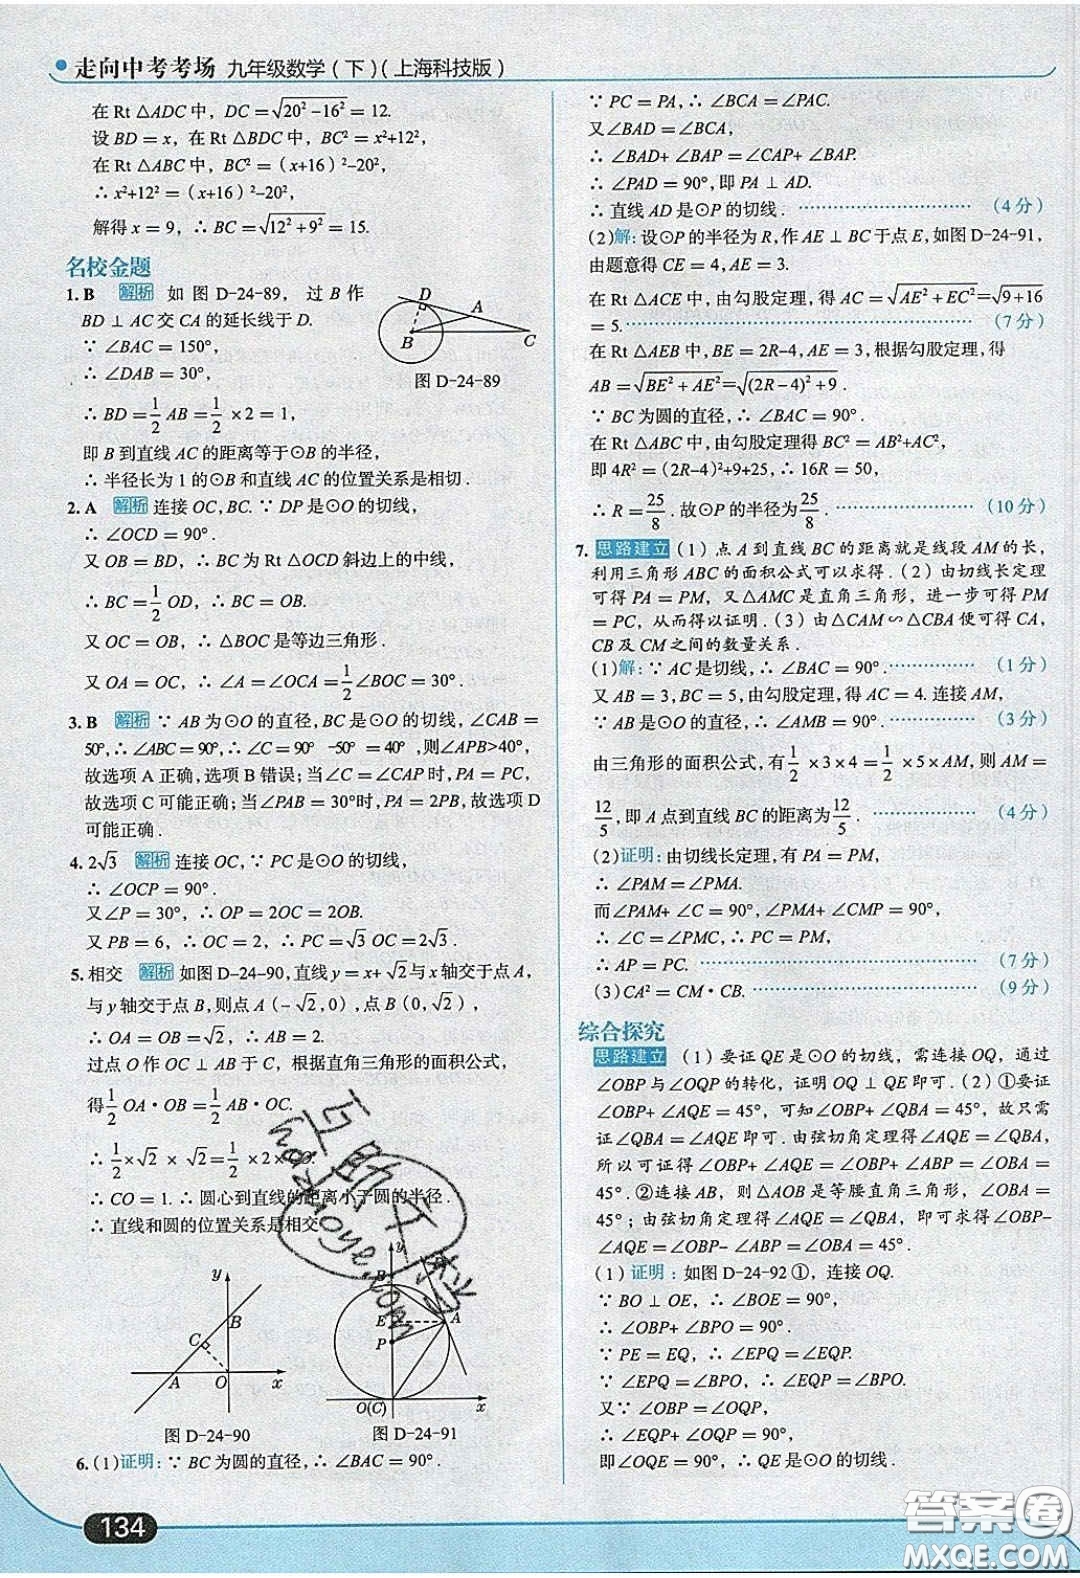 走向中考考场 九年级数学(下)(上海科技版)
在 Rt △ADC 中，DC =√(20²-16²)= 12.
设 BD = x，在 Rt △BDC 中，BC² = x²+12²，
在 Rt △ABC 中，BC² =（x+16）²-20²，
∴ x²+12² =（x+16）²-20²，
解得 x = 9，∴ BC =√(12²+9²)= 15.
名校金题
1. B 解析 如图 D-24-89，过 B 作
BD ⊥ AC 交 CA 的延长线于 D.
∵ ∠BAC = 150°，
∴ ∠DAB = 30°，
∴ BD = 1/2 AB = 1/2 ×2 = 1，
即 B 到直线 AC 的距离等于⊙B 的半径，
∴ 半径长为 1 的⊙B 和直线 AC 的位置关系是相切.
D
A
B
C
图 D-24-89
2. A 解析 连接 OC，BC. ∵ DP 是⊙O 的切线，
∴ ∠OCD = 90°.
又 OB = BD，∴ BC 为 Rt △OCD 斜边上的中线，
∴ BC = 1/2 OD，∴ BC = OB.
又 OC = OB，∴ △BOC 是等边三角形.
又 OA = OC，∴ ∠A = ∠OCA = 1/2 ∠BOC = 30°.
3. B 解析 ∵ AB 为⊙O 的直径，BC 是⊙O 的切线，∠CAB =
50°，∴ ∠ABC = 90°，∴ ∠C = 90° -50° = 40°，则∠APB>40°，
故选项 A 正确，选项 B 错误；当∠C = ∠CAP时，PA = PC，
故选项 C 可能正确；当∠PAB = 30°时，PA = 2PB，故选项 D
可能正确.
4. 2√3 解析 连接 OC，∵ PC 是⊙O 的切线，
∴ ∠OCP = 90°.
又∠P = 30°，∴ OP = 2OC = 2OB.
又 PB = 6，∴ OC = 2，∴ PC =√3 OC = 2√3.
5. 相交 解析 如图 D-24-90，直线 y = x+√2与 x 轴交于点 A，
与 y 轴交于点 B，则点 A（-√2，0），点 B（0，√2），
∴ OA = OB =√2，∴ AB = 2.
过点 O 作 OC ⊥ AB 于 C，根据直角三角形的面积公式，
得 1/2 OA·OB = 1/2 AB·OC.
∴ 1/2 ×√2 ×√2 = 1/2 ×2×OC.
∴ CO = 1. ∴ 圆心到直线的距离小于圆的半径.
∴ 直线和圆的位置关系是相交.
y
B
C
A
O
x
图 D-24-90
y
B
E
A
P
O(C)
x
图 D-24-91
6.（1）证明：∵ BC 为圆的直径，∴ ∠BAC = 90°.
∵ PC = PA，∴ ∠BCA = ∠PAC.
又∠BAD = ∠BCA，
∴ ∠BAD+ ∠BAP = ∠CAP+ ∠BAP.
∴ ∠PAD = 90°，即 PA ⊥ AD.
∴ 直线 AD 是⊙P 的切线. （4 分）
（2）解：设⊙P 的半径为 R，作 AE ⊥ BC 于点 E，如图 D-24-91，
由题意得 CE = 4，AE = 3.
在 Rt △ACE 中，由勾股定理，得 AC =√(AE²+EC²)=√(9+16)
= 5. （7 分）
在 Rt △AEB 中，BE = 2R-4，AE = 3，根据勾股定理，得
AB =√(BE²+AE²)=√((2R-4)²+9).
∵ BC 为圆的直径，∴ ∠BAC = 90°.
在 Rt △ABC 中，由勾股定理得 BC² = AB²+AC²，
即 4R² =（2R-4）²+9+25，∴ 16R = 50，
∴ R = 25/8. 故⊙P 的半径为 25/8. （10 分）
7. 思路建立（1）点 A 到直线 BC 的距离就是线段 AM 的长，
利用三角形 ABC 的面积公式可以求得.（2）由切线长定理
可得 PA = PM，又△AMC 是直角三角形，进一步可得 PM
= PC，从而得以证明.（3）由△CAM∽△CBA 便可得 CA，
CB 及 CM 之间的数量关系.
（1）解：∵ AC 是切线，∴ ∠BAC = 90°. （1 分）
又 AB = 3，BC = 5，由勾股定理，得 AC = 4. 连接 AM，
∵ AB 是⊙O 的直径，∴ ∠AMB = 90°. （3 分）
由三角形的面积公式，有 1/2 ×3×4 = 1/2 ×5×AM，则 AM =
12/5，即 A 点到直线 BC 的距离为 12/5. （4 分）
（2）证明：由切线长定理，有 PA = PM，
∴ ∠PAM = ∠PMA.
而∠PAM+ ∠C = 90°，∠PMA+ ∠CMP = 90°，
∴ ∠C = ∠PMC，∴ PC = PM，
∴ AP = PC. （7 分）
（3）CA² = CM·CB. （9 分）
综合探究
思路建立（1）要证 QE 是⊙O 的切线，需连接 OQ，通过
∠OBP 与∠OQP 的转化，证明 OQ ⊥ QE 即可.（2）①要证
∠OBP+ ∠AQE = 45°，可知∠OBP+ ∠QBA = 45°，故只需
证∠QBA = ∠AQE 即可. 由弦切角定理得∠AQE = ∠QBA，
所以可证得∠OBP+ ∠AQE = ∠OBP+ ∠ABP = ∠OBA =
45°. ②连接 AB，则△AOB 是等腰直角三角形，∠OBA =
45°；由弦切角定理得∠AQE = ∠QBA，即可求得∠OBP-
∠AQE = ∠OBP- ∠ABP = ∠OBA = 45°.
（1）证明：如图 D-24-92 ①，连接 OQ.
∵ BO ⊥ OE，∴ ∠BOE = 90°，
∴ ∠OBP+ ∠BPO = 90°.
∵ PE = EQ，∴ ∠EPQ = ∠EQP.
∵ ∠EPQ = ∠BPO，∴ ∠EQP = ∠BPO.
又∵ ∠OBP = ∠OQP，
∴ ∠EQP+ ∠OQP = 90°，
即∠OQE = 90°，∴ QE 是⊙O 的切线.
134
答案圈
MXQE.COM